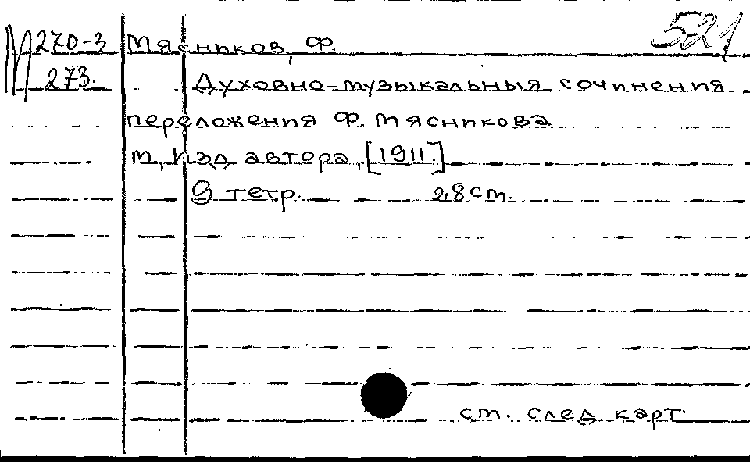 521
М 270-3 Мясников, Ф.
273. Духовно-музыкальныя сочинения
переложения Ф. Мясникова
М, Изд автора, [1911]
9 тетр. 28 cm.
см. след карт